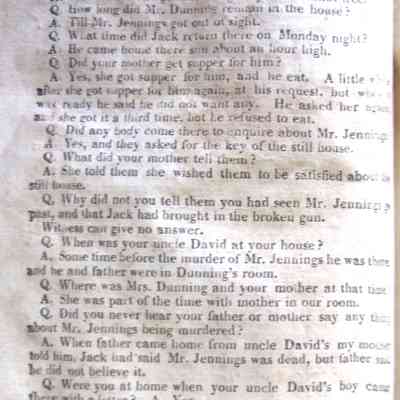 Q. How long did Mr. Dunning remain in the house?
A. Till Mr. Jennings got out of sight.
Q. What time did Jack return there on Monday night?
A. He came home there sun about an hour high.
Q. Did your mother get supper for him?
A. Yes, she got supper for him, and he eat. A little
after she got supper for him again, at his request, but
was ready he said he did not want any. He asked her again
and she got it a third time, but he refused to eat.
Q. Did any body come there to enquire about Mr. Jennings
A. Yes, and they asked for the key of the still house.
Q. What did your mother tell them?
A. She told them she wished them to be satisfied about
still house.
Q. Why did not you tell them you had seen Mr. Jennings
past, and that Jack had brought in the broken gun.
Witness can give no answer.
Q. When was your uncle David at your house?
A. Some time before the murder of Mr. Jennings he was there
and he and father were in Dunning's room.
Q. Where was Mrs. Dunning and your mother at that time
A. She was part of the time with mother in our room.
Q. Did you never hear your father or mother say any thing
about Mr. Jennings being murdered?
A. When father came home from uncle David's my mother
told him, Jack had said Mr. Jennings was dead, but father said
he did not believe it.
Q. Were you at home when your uncle David's boy came
there with a letter? A. Yes